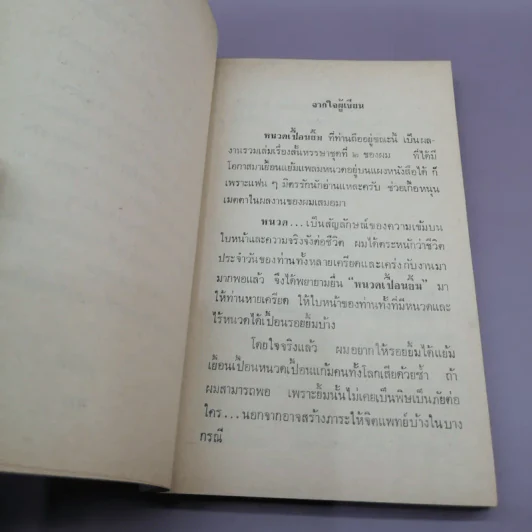 จากใจผู้เขียน
หนวดเปื้อนยิ้ม ที่ท่านถืออยู่ขณะนี้ เป็นผล-
งานรวมเล่มเรื่องสั้นหรรษาชุดที่ ๒ ของผม ที่ได้มี
โอกาสมาเยื้อนแย้มแพลมหนวดอยู่บนแผงหนังสือได้ ก็
เพราะแฟน ๆ มิตรรักนักอ่านแหละครับ ช่วยเกื้อหนุน
เมตตาในผลงานของผมเสมอมา
หนวด...เป็นสัญลักษณ์ของความเข้มบน
ใบหน้าและความจริงจังต่อชีวิต ผมได้ตระหนักว่าชีวิต
ประจำวันของท่านทั้งหลายเครียดและเคร่งกับงานมา
มากพอแล้ว จึงได้พยายามยื่น "หนวดเปื้อนยิ้ม" มา
ให้ท่านหายเครียด ให้ใบหน้าของท่านทั้งที่มีหนวดและ
ไร้หนวดได้เปื้อนรอยยิ้มบ้าง
โดยใจจริงแล้ว ผมอยากให้รอยยิ้มได้แย้ม
เยื้อนเปื้อนหนวดเปื้อนแก้มคนทั้งโลกเสียด้วยซ้ำ ถ้า
ผมสามารถพอ เพราะยิ้มนั้นไม่เคยเป็นพิษเป็นภัยต่อ
ใคร...นอกจากอาจสร้างภาระให้จิตแพทย์บ้างในบาง
กรณี